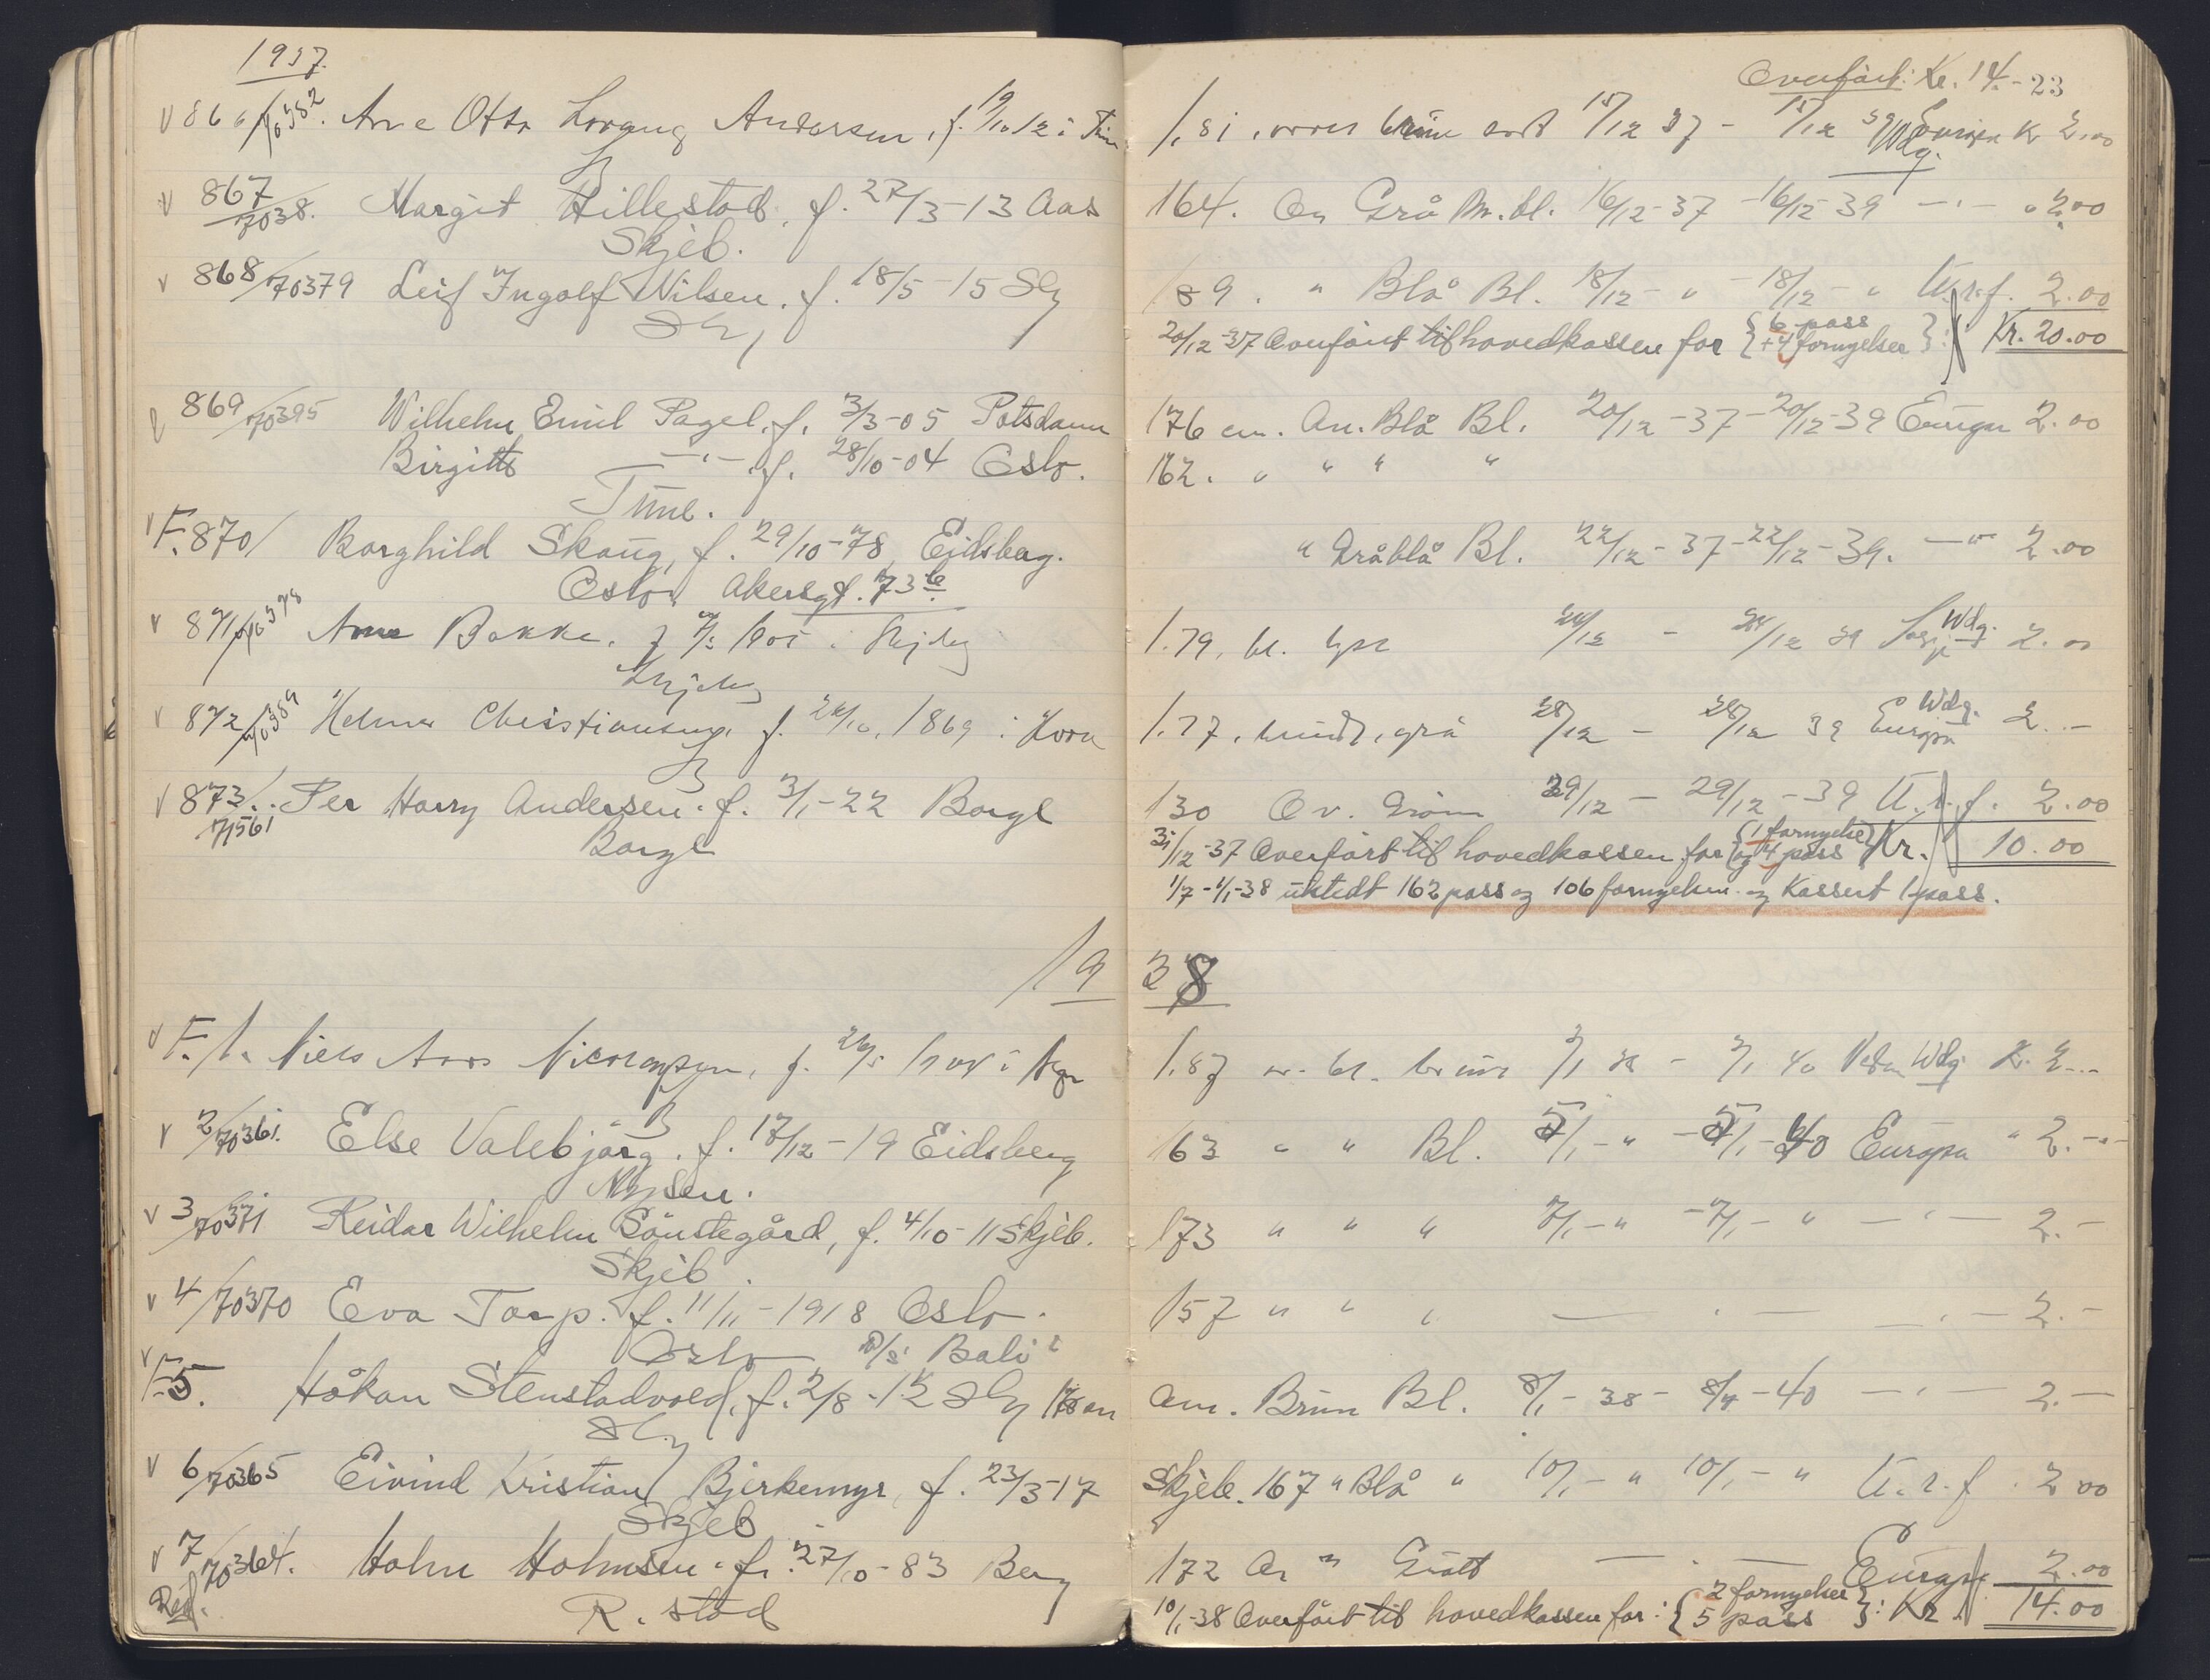 1937
Overført: Kr. 14.- 23
v 866/70382. Arne Otto Andersen, f. 19/10 12 i 1.81, brun 15/12 37 - 15/12 39 Europa Kr 2.00
Wdg.
v 867/7038. Margit Hillestad, f. 27/3-13 Aas 164. Ov Grå M. bl. 16/12-37 -16/12-39 -"- " 2.00
Skjeb.
v 868/70379 Leif Ingolf Nilsen, f. 18/5-15 Sbg 189. " Blå Bl. 18/12- " -18/12- " U.r.f. 2.00
Sbg
20/12-37 Overført til hovedkassen for { 6 pass + 4 fornyelser } : Kr. 20.00
869/70395 Wilhelm Emil Pagel, f. 3/3-05 Potsdam 176 cm. Ov. Blå Bl. 20/12-37-20/12-39 Europa 2.00
Birgitte -"- f. 28/10-04 Oslo. 162. " " " "
Tune.
v F. 870/ Borghild Skaug, f. 29/10-78 Eidsberg. " Gråblå Bl. 22/12-37-22/12-39. -"- 2.00
Oslo, Akersgt. 73 b
v 871/70378 Arne Bakke, f. 1905 i 1.79, bl. 24/12 - 24/12 39 Wdg. 2.00
v 872/70389 Christiansen, f. 1869 i 1.77, grå 28/12 - 28/12 39 Europa Wdg. 2.-
v 873/71561 Per Harry Andersen. f. 3/1-22 Borge 130 Ov. Grøn 29/12 - 29/12-39 U.r.f. 2.00
Borge
31/12-37 Overført til hovedkassen for { 1 fornyelse og 4 pass } Kr. 10.00
1/7-1/1-38 utstedt 162 pass og 106 fornyelser og Kassert 1 pass.
1938
v F. 1. Niels f. 26/5 i 1.87 bl. brun 3/1 38 - 3/1 40 Wdg Kr. 2.-
v 2/70361. Else Valebjørg. f. 17/12-19 Eidsberg 163 " " Bl. 5/1- " -5/1-40 Europa " 2.-
Mysen.
v 3/70371 Reidar Wilhelm Sønstegård, f. 4/10-11 Skjeb. 173 " " " 7/1- " -7/1- " -"- 2.-
Skjeb.
v 4/70370 Eva Torp. f. 11/11-1918 Oslo. 157 " " " -"- -"- 2.-
Oslo D/S "Bali"
v F 5. Håkan Stenstadvold, f. 2/8-12 Sbg 178 cm Ov. Brun Bl. 8/1-38 - 8/1-40 -"- 2.-
Sbg
v 6/70365 Eivind Kristian Bjerkemyr, f. 23/3-17 Skjeb. 167 " Blå " 10/1- " 10/1- " U.r.f. 2.00
Skjeb
v 7/70364. Holm Holmsen. f. 27/10-83 Berg 172 Ov " Grått -"- Europa 2.00
R. stad
Red.
10/1-38 Overført til hovedkassen for: { 2 fornyelser 5 pass } : Kr 14.00